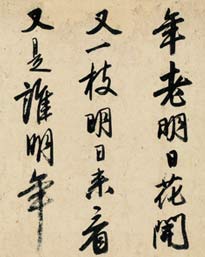 年老明日花開
又一枝明日来看
又是誰明年